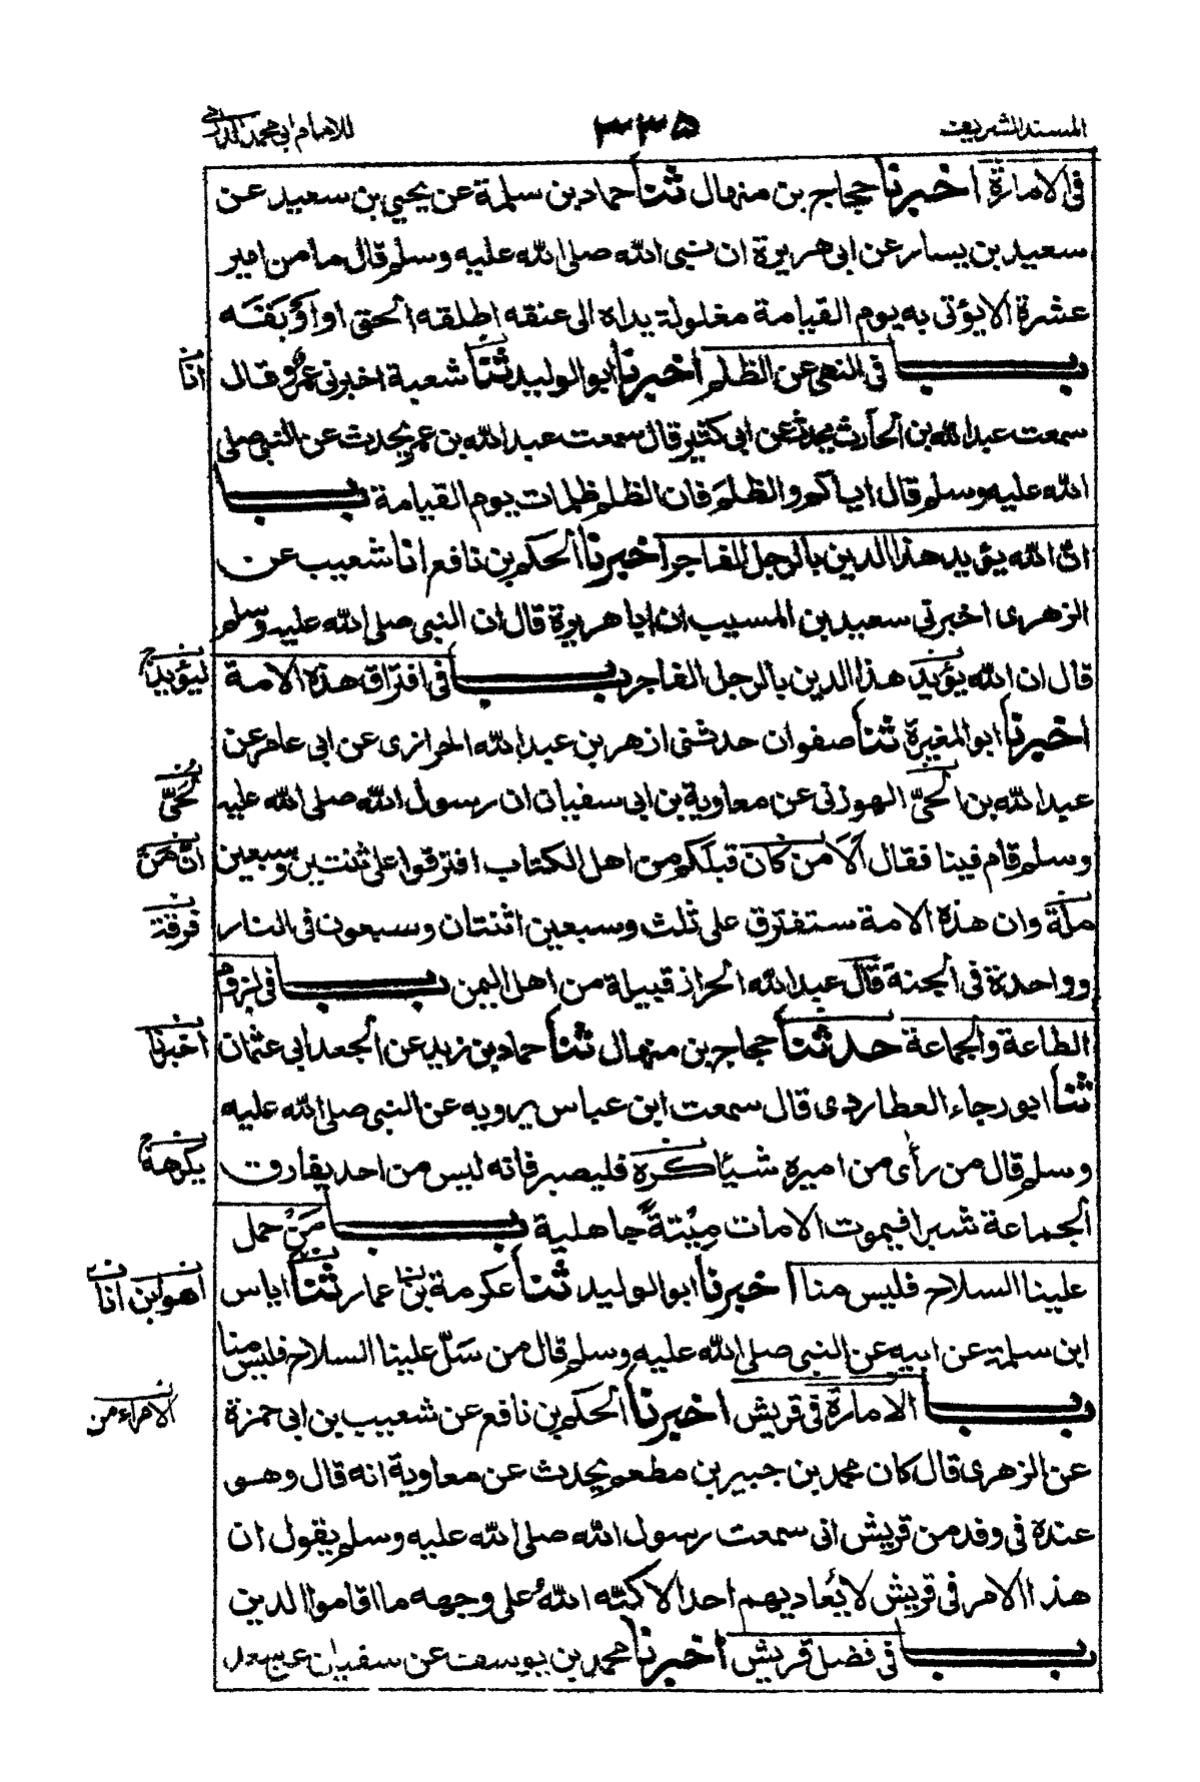 المسند الشريف
٣٣٥
للامام ابي محمد الدارمي
في الامارة اخبرنا حجاج بن منهال ثنا حماد بن سلمة عن يحيى بن سعيد عن
سعيد بن يسار عن ابي هريرة ان نبي الله صلى الله عليه وسلم قال ما من امير
عشرة الا يؤتى به يوم القيامة مغلولة يداه الى عنقه اطلقه الحق او اَوْبَقَه
باب في النهي عن الظلم اخبرنا ابو الوليد ثنا شعبة اخبرني عمرو قال
انا
سمعت عبد الله بن الحارث يحدث عن ابي كثير قال سمعت عبد الله بن عمر يحدث عن النبي صلى
الله عليه وسلم قال اياكم والظلم فان الظلم ظلمات يوم القيامة باب
ان الله يؤيد هذا الدين بالرجل الفاجر اخبرنا الحكم بن نافع انا شعيب عن
الزهري اخبرني سعيد بن المسيب ان ابا هريرة قال ان النبي صلى الله عليه وسلم
قال ان الله يؤيد هذا الدين بالرجل الفاجر باب في افتراق هذه الامة
ليؤيد
اخبرنا ابو المغيرة ثنا صفوان حدثني ازهر بن عبد الله الحرازي عن ابي عامر عن
عبد الله بن الحيّ الهوزني عن معاوية بن ابي سفيان ان رسول الله صلى الله عليه
لُحَيّ
وسلم قام فينا فقال اَلَا من كان قبلكم من اهل الكتاب افترقوا على ثنتين وسبعين
ملة وان هذه الامة ستفترق على ثلث وسبعين اثنتان وسبعون في النار
فرقة
وواحدة في الجنة قال عبد الله الحراز قبيلة من اهل اليمن باب في لزوم
الطاعة والجماعة حدثنا حجاج بن منهال ثنا حماد بن زيد عن الجعد ابي عثمان
اخبرنا
ثنا ابو رجاء العطاردي قال سمعت ابن عباس يرويه عن النبي صلى الله عليه
وسلم قال من رأى من اميره شيئا كره فليصبر فانه ليس من احد يفارق
يكرهه
الجماعة شبرا فيموت الا مات مِيْتةً جاهلية باب مَنْ حمل
علينا السلاح فليس منا اخبرنا ابو الوليد ثنا عكرمة بن عمار ثنا اياس
هو ابن انا
ابن سلمة عن ابيه عن النبي صلى الله عليه وسلم قال من سَلّ علينا السلاح فليس منا
باب الامارة في قريش اخبرنا الحكم بن نافع عن شعيب بن ابي حمزة
الامراء من
عن الزهري قال كان محمد بن جبير بن مطعم يحدث عن معاوية انه قال وهو
عنده في وفد من قريش اني سمعت رسول الله صلى الله عليه وسلم يقول ان
هذا الامر في قريش لا يُعاديهم احد الا كبّه اللهُ على وجهه ما اقاموا الدين
باب في فضل قريش اخبرنا محمد بن يوسف عن سفيان عن سعد